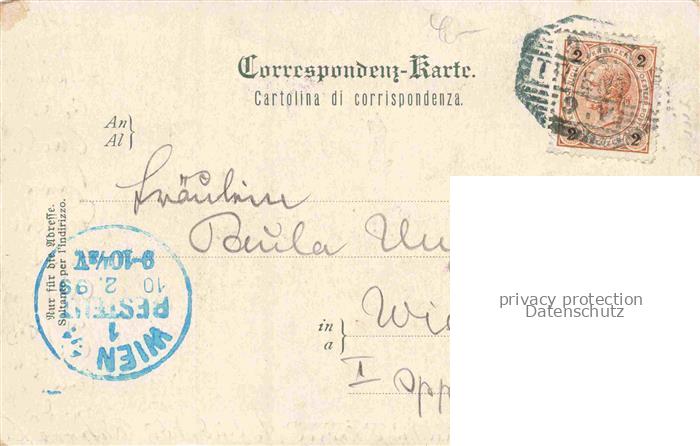 Correspondenz-Karte.
Cartolina di corrispondenza.
An
Al
Fräulein
Paula
in
a
I
Nur für die Adresse.
Soltanto per l'indirizzo.
WIEN
1
BESTELLT
10 2 99
9-10½V
2
2
2
2
KREUZER
privacy protection
Datenschutz